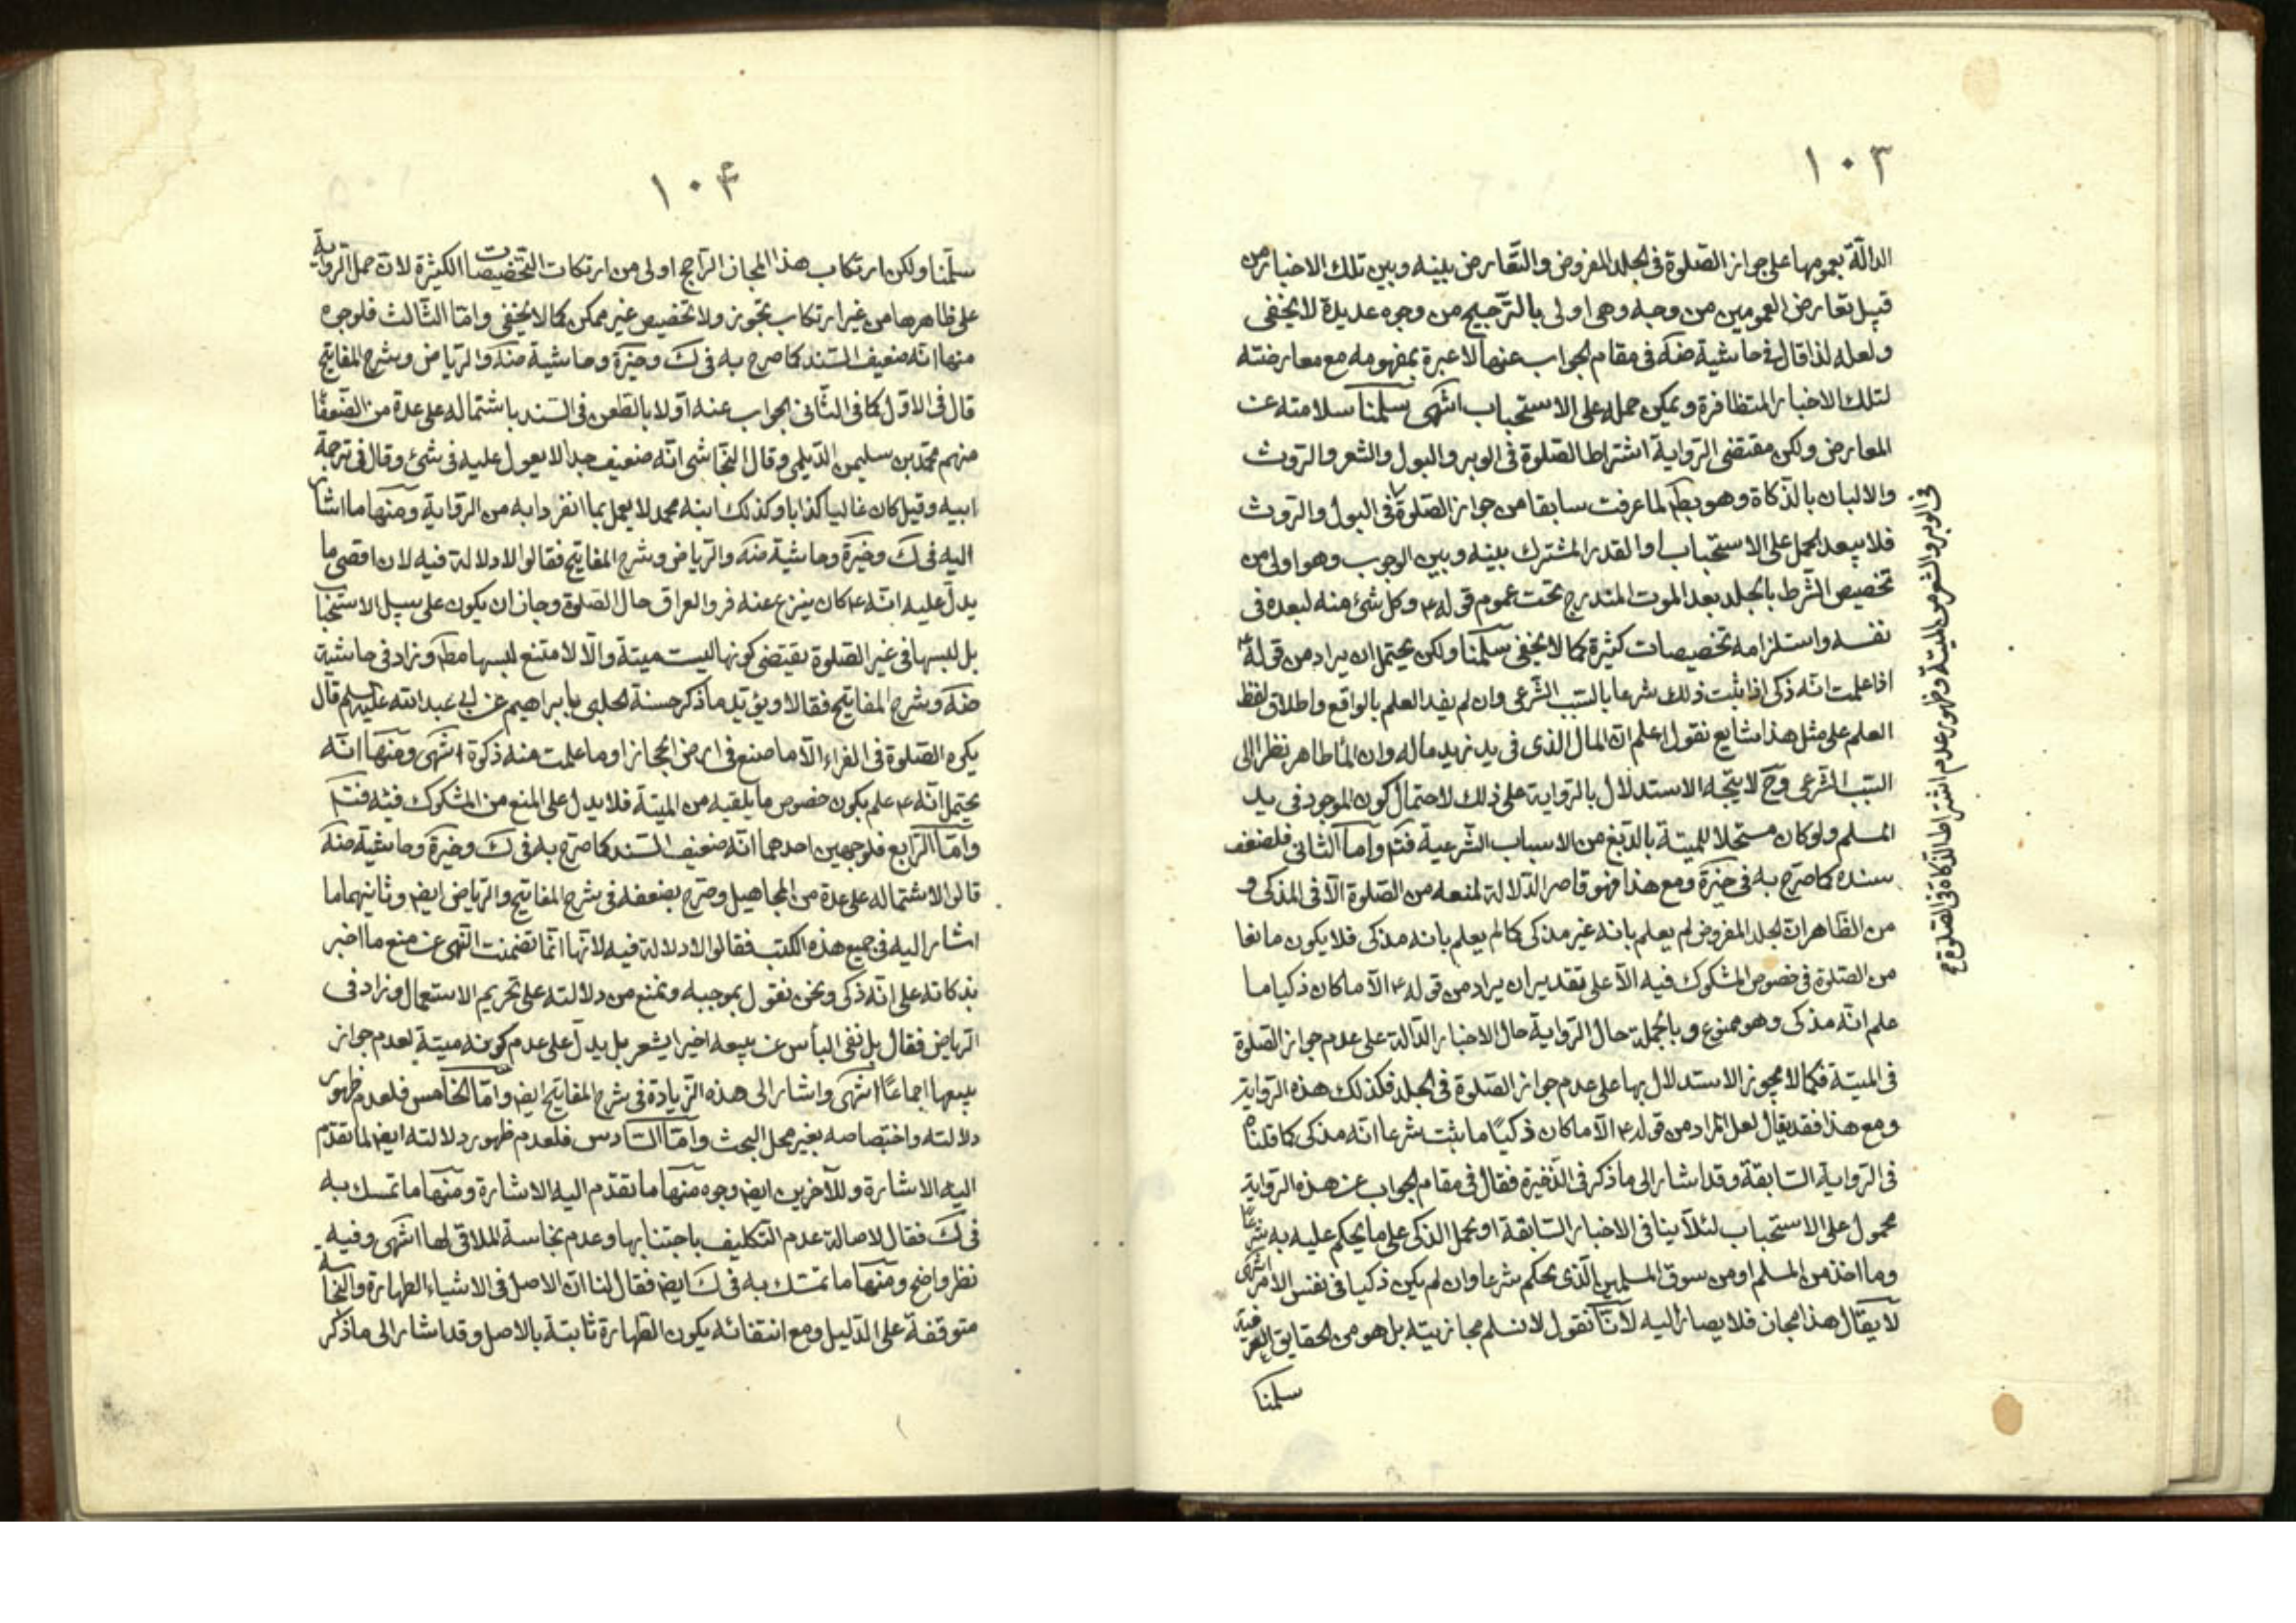 ١٠٣
الدالّة بعمومها على جواز الصّلوة فى الجلد المفروض والتّعارض بينه وبين تلك الاخبار من
قبيل تعارض العمومين من وجه وهى اولى بالتّرجيح من وجوه عديدة لا يخفى
ولعله لذا قال فى حاشية ضه فى مقام الجواب عنها لا عبرة بمفهومه مع معارضته
لتلك الاخبار المتظافرة ويمكن حمله على الاستحباب انتهى سلّمنا سلامته عن
المعارض ولكن مقتضى الرّواية اشتراط الصّلوة فى الوبر والبول والشعر والرّوث
والالبان بالذّكاة وهو بط لما عرفت سابقا من جواز الصّلوة فى البول والروث
فى الوبر والشعر من الميتة وظهور عدم اشتراط الذّكاة فى الصلوة
فلا يبعد الحمل على الاستحباب او القدر المشترك بينه وبين الوجوب وهو اولى من
تخصيص الشّرط بالجلد بعد الموت المتدرج تحت عموم قوله ع وكل شئ منه لبعده فى
نفسه واستلزامه تخصيصات كثيرة كما لا يخفى سلّمنا ولكن يحتمل ان يراد من قوله ع
اذا علمت انّه ذكى اذا ثبت ذلك شرعا بالسّبب الشّرعى وان لم يفد العلم بالواقع واطلاق لفظ
العلم على مثل هذا شايع نقول اعلم انّ المال الذى فى يد زيد ماله وان الماء طاهر نظرا الى
السّبب الشّرعى وح لا يتّجه الاستدلال بالرّواية على ذلك لاحتمال كون الموجود فى يد
المسلم ولو كان مستحلا للميتة بالدّبغ من الاسباب الشّرعية فتم وامّا الثّانى فلضعف
سنده كما صرّح به فى خيرة ومع هذا فهو قاصر الدّلالة لمنعه من الصّلوة الّا فى المذكى و
من الظّاهر ان الجلد المفروض لم يعلم بانه غير مذكى كما لم يعلم بانه مذكى فلا يكون مانعا
من الصّلوة فى خصوص المشكوك فيه الّا على تقدير ان يراد من قوله ع الّا ما كان ذكيا ما
علم انّه مذكى وهو ممنوع وبالجملة حال الرّواية حال الاخبار الدّالة على عدم جواز الصّلوة
فى الميتة فكما لا يجوز الاستدلال بها على عدم جواز الصّلوة فى الجلد فكذلك هذه الرّواية
ومع هذا فقد يقال لعل المراد من قوله ع الّا ما كان ذكيّا ما يثبت شرعا انّه مذكى كما قلناه
فى الرّواية السّابقة وقد اشار الى ما ذكر فى الذّخيرة فقال فى مقام الجواب عن هذه الرّواية
محمول على الاستحباب لئلّا ينافى الاخبار السّابقة او يحمل الذكى على ما يحكم عليه به شرعًا
وما اخذ من المسلم او من سوق المسلمين الّذى يحكم شرعا وان لم يكن ذكيا فى نفس الامر انتهى
لا يقال هذا مجاز فلا يصار اليه لانّا نقول لا نسلم مجازيته بل هو من الحقايق العرفية
سلمنا
١٠۴
سلّمنا ولكن ارتكاب هذا المجاز الرّاجح اولى من ارتكاب التّخصيصات الكثيرة لان حمل الرّواية
على ظاهرها من غير ارتكاب تجوز ولا تخصيص غير ممكن كما لا يخفى وامّا الثّالث فلوجوه
منها انّه ضعيف السّند كما صرح به فى ك وخيرة وحاشية ضه والرّياض وشرح المفاتيح
قال فى الاوّل كما فى الثّانى الجواب عنه اوّلا بالطعن فى السّند باشتماله على عدة من الضّعفا
منهم محمّد بن سليمن الدّيلمى وقال النّجاشى انّه ضعيف جدا لا يعول عليه فى شئ وقال فى ترجمة
ابيه وقيل كان غاليا كذابا وكذلك ابنه محمد لا يعمل بما انفردا به من الرّواية ومنها ما اشار
اليه فى ك وخيرة وحاشية ضه والرّياض وشرح المفاتيح فقالوا لا دلالة فيه لان اقصى ما
يدلّ عليه انّه ع كان ينزع عنه فرو العراق حال الصّلوة وجاز ان يكون على سبيل الاستحباب
بل لبسها فى غير الصّلوة يقتضى كونها ليست ميتة والّا لامتنع لبسها مط وزاد فى حاشية
ضه وشرح المفاتيح فقالا ويؤيّد ما ذكر حسنة الحلبى بابراهيم عن ابى عبد الله عليه السلم قال
يكره الصّلوة فى الفراء الّا ما صنع فى ارض الحجاز او ما علمت منه ذكوة انتهى ومنها انّه
يحتمل انّه ع علم بكون خصوص ما يلقيه من الميتة فلا يدل على المنع من المشكوك فيه فتم
وامّا الرّابع فلوجهين احدهما انّه ضعيف السّند كما صرّح به فى ك وخيرة وحاشية ضه
قالوا لاشتماله على عدة من المجاهيل وصرّح بضعفه فى شرح المفاتيح والرّياض ايض وثانيهما ما
اشار اليه فى جميع هذه الكتب فقالوا لا دلالة فيه لانّها انّما تضمنت النّهى عن منع ما اخبر
بذكاته على انّه ذكى ونحن نقول بموجبه ونمنع من دلالته على تحريم الاستعمال وزاد فى
الرياض فقال بل نفى البأس عن بيعه اخيرا يشعر بل يدلّ على عدم كونه ميتة لعدم جواز
بيعها اجماعًا انتهى واشار الى هذه الزّيادة فى شرح المفاتيح ايض وامّا الخامس فلعدم ظهور
دلالته واختصاصه بغير محل البحث وامّا السّادس فلعدم ظهور دلالته ايض لما تقدّم
اليه الاشارة وللآخرين ايض وجوه منها ما تقدّم اليه الاشارة ومنها ما تمسك به
فى ك فقال لاصالة عدم التّكليف باجتنابها وعدم نجاسة الملاقى لها انتهى وفيه
نظر واضح ومنها ما تمسّك به فى ك ايض فقال لنا انّ الاصل فى الاشياء الطهارة والنّجاسة
متوقفة على الدّليل ومع انتفائه يكون الطّهارة ثابتة بالاصل وقد اشار الى ما ذكر